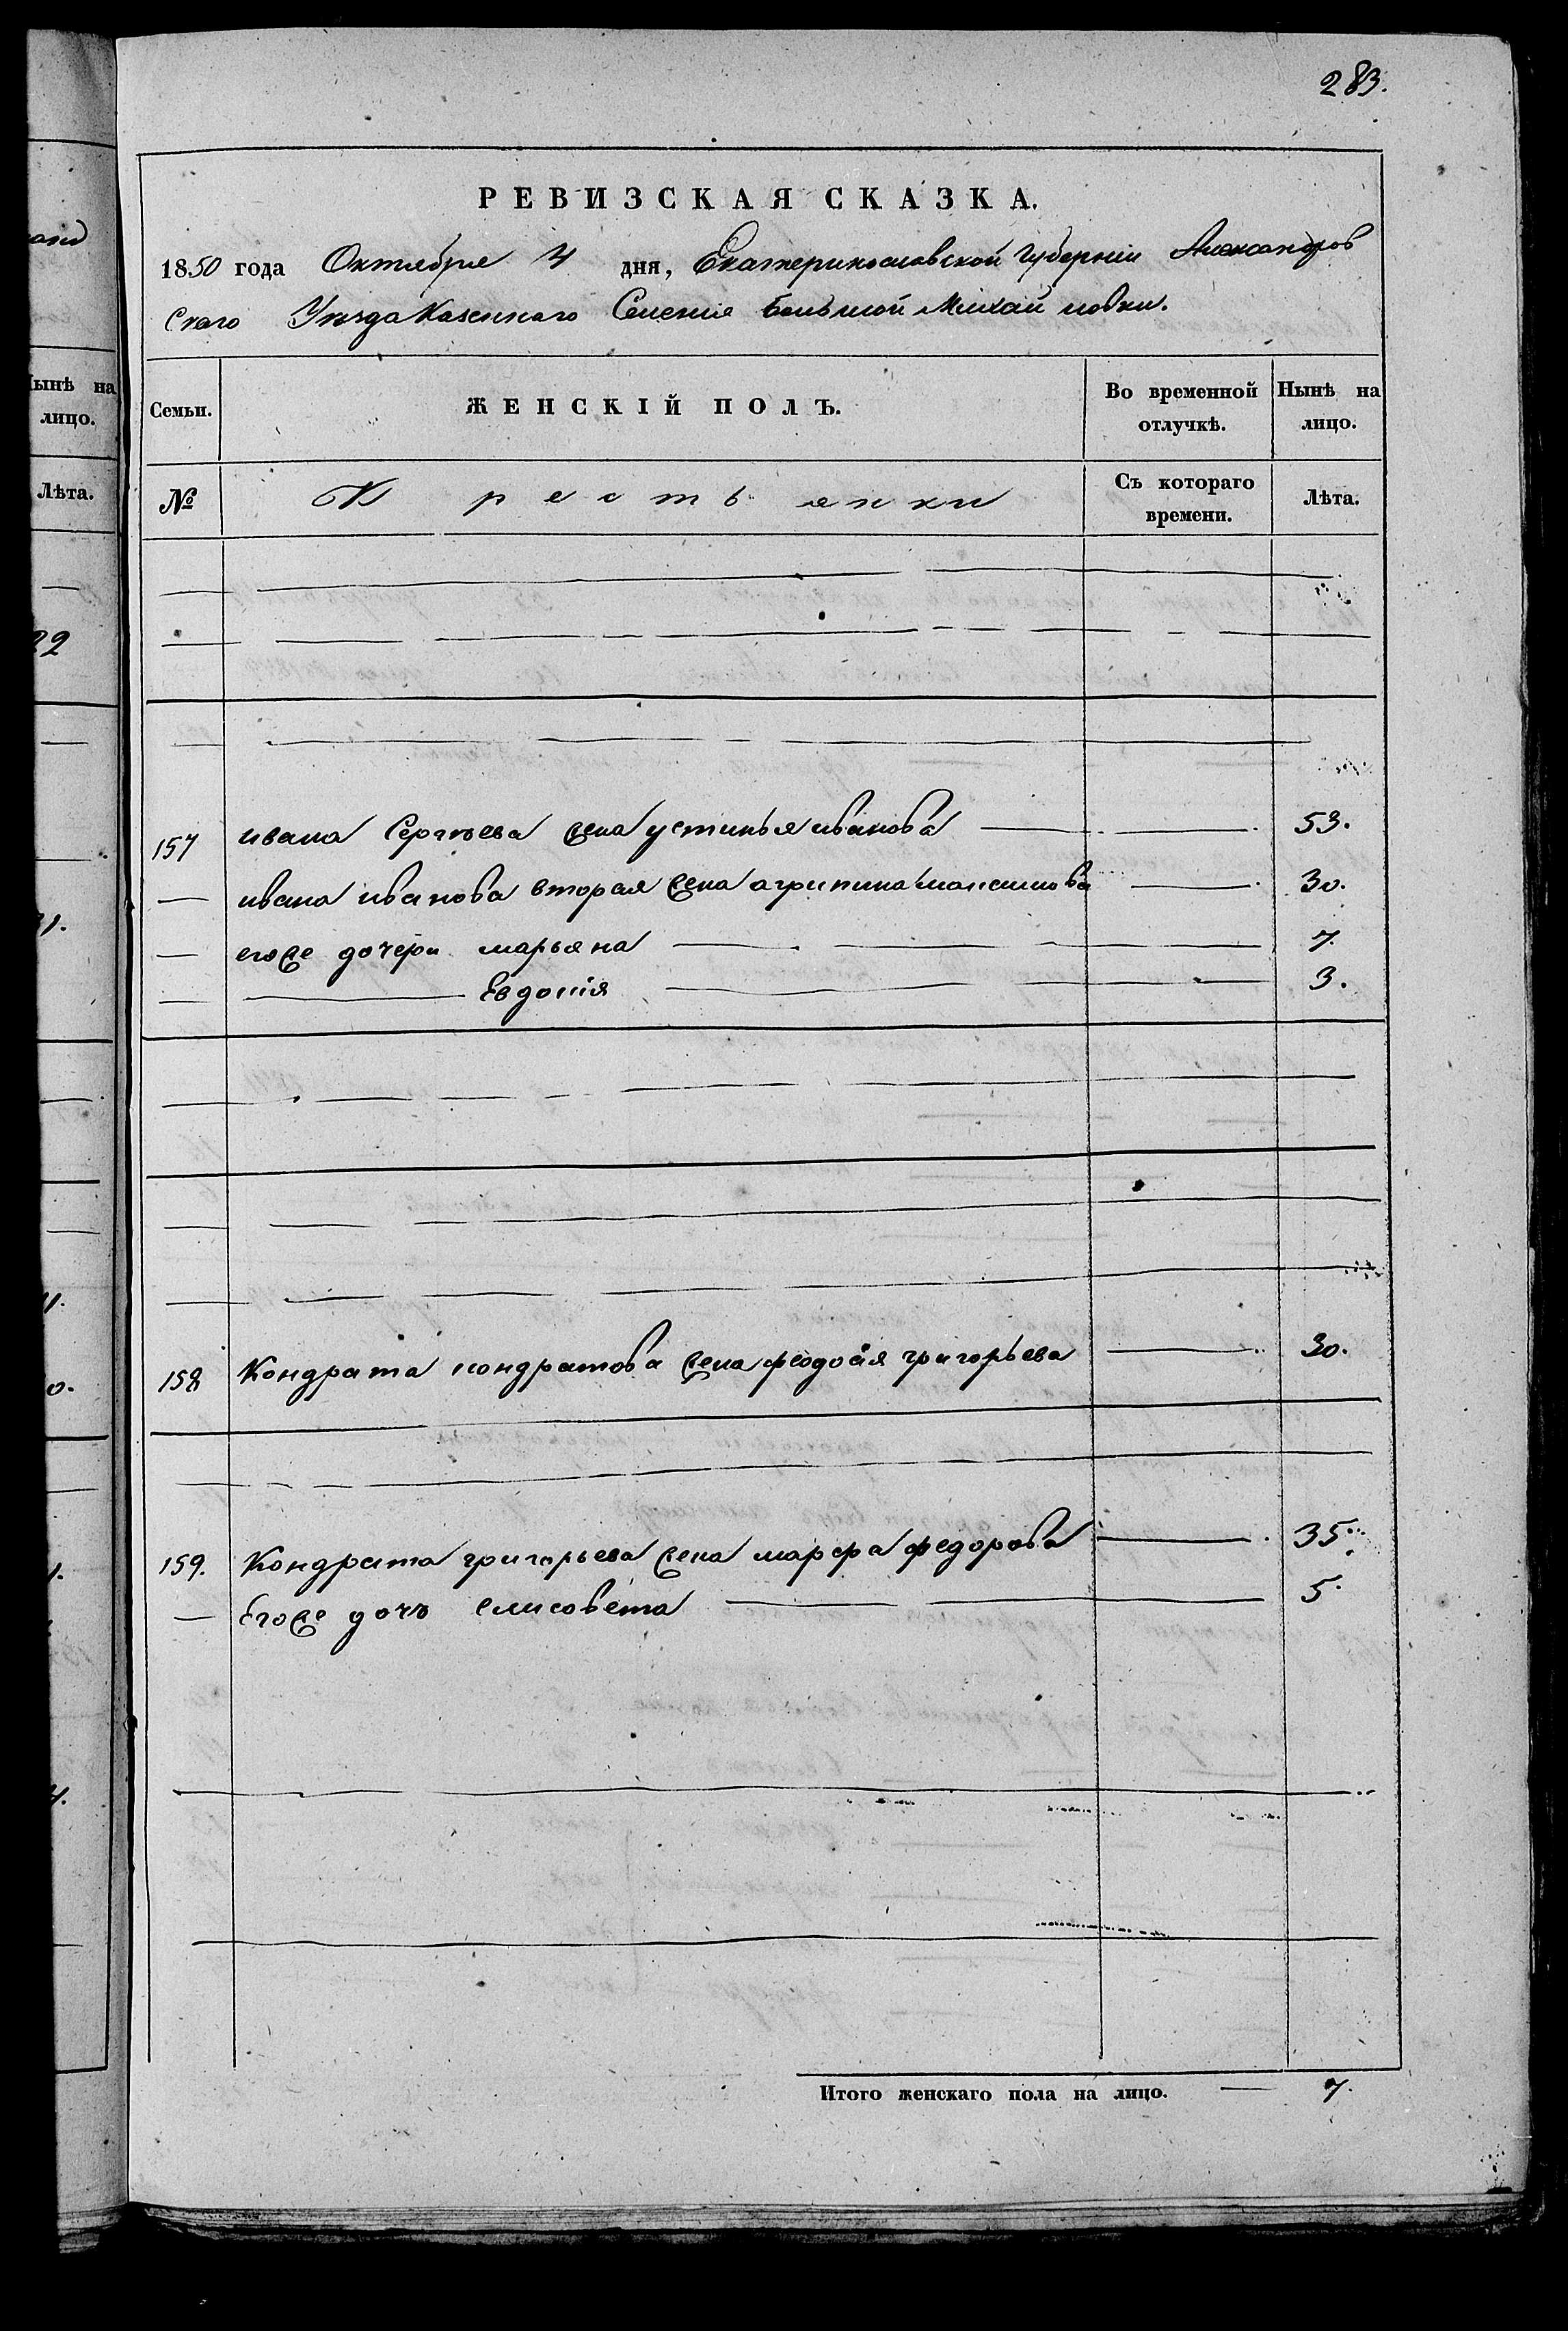 283.
РЕВИЗСКАЯ СКАЗКА.
1850 года Октября 4 дня, Екатеринославской Губерніи Александров
скаго Уезда Казеннаго Селенія Большой Михайловки.
Семьи. ЖЕНСКІЙ ПОЛЪ. Во временной отлучкѣ. Нынѣ на лицо.
№ Крестьянки Съ котораго времени. Лѣта.
157 ивана Сергѣева жена устинья иванова 53.
— ивана иванова вторая жена агрипина максимова 30.
— егоже дочери марьяна 7.
— Евдокія 3.
158 Кондрата кондратова жена феодосія григорьева 30.
159. Кондрата григорьева жена марфа федорова 35.
— Егоже дочъ елисовета 5.
Итого женскаго пола на лицо. — 7.
Нынѣ на
лицо.
Лѣта.
22